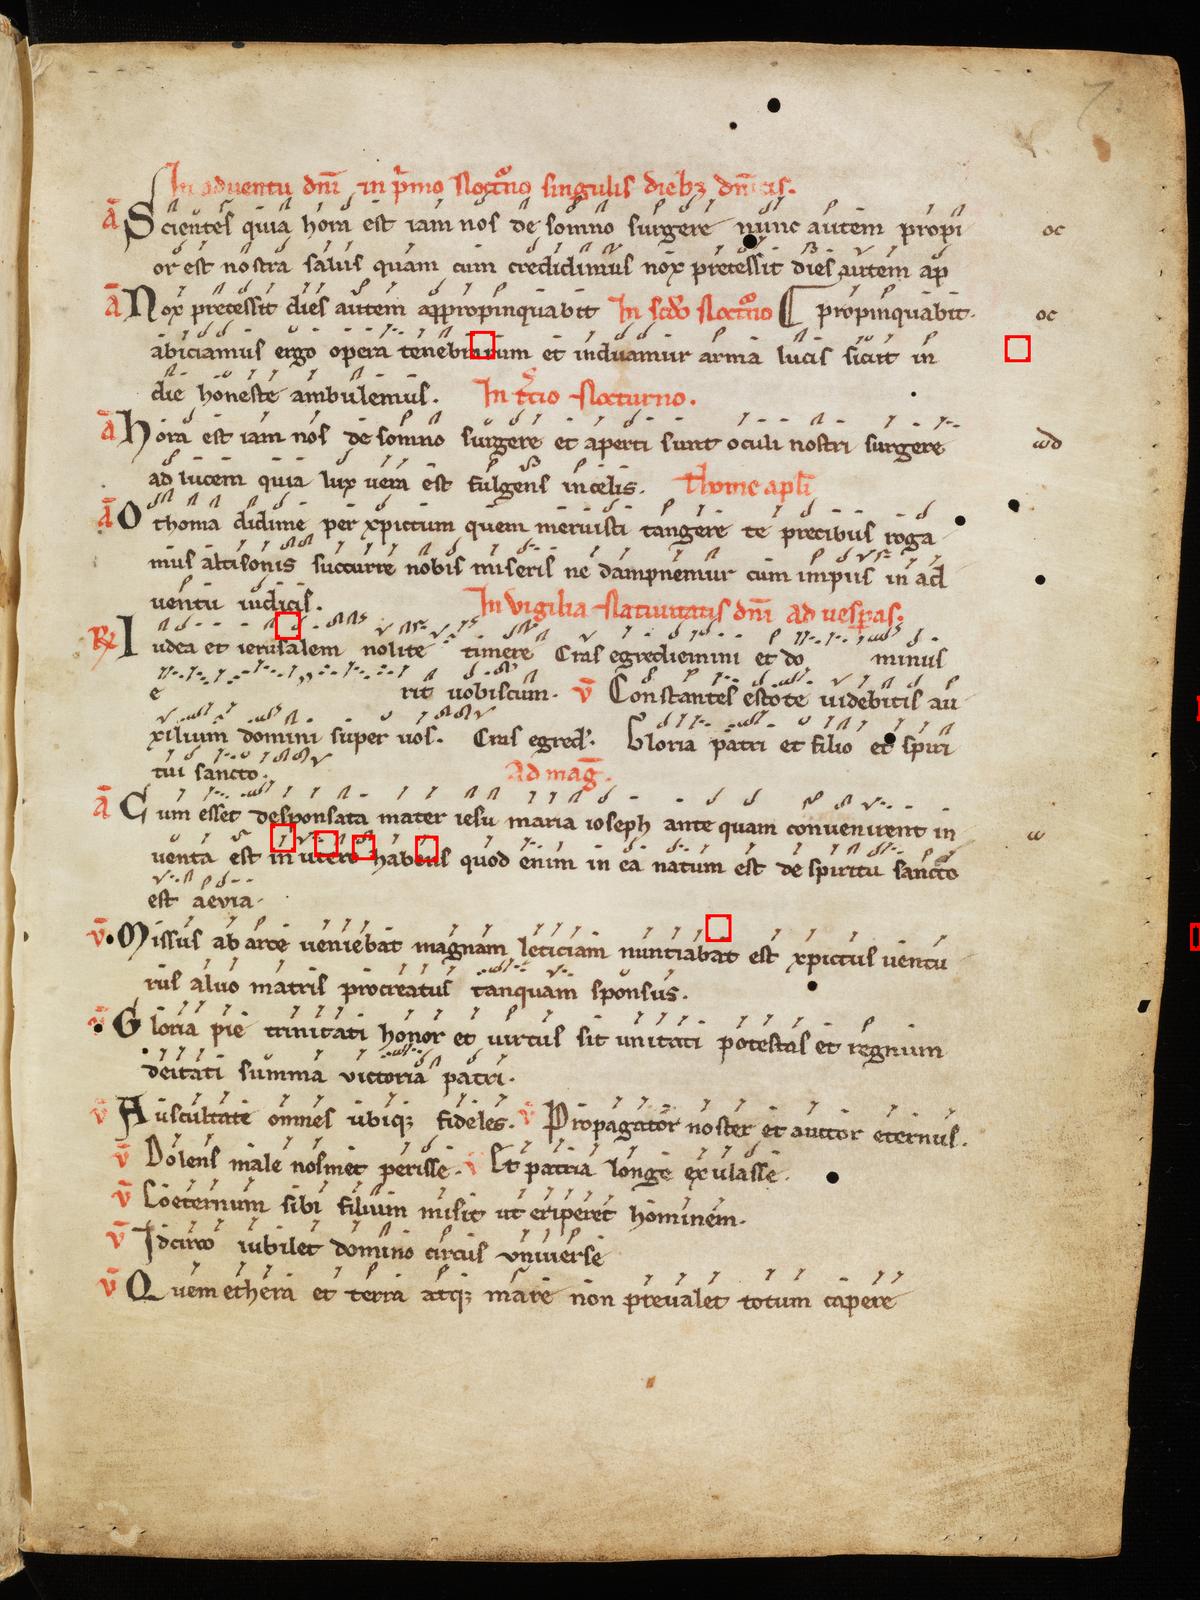 7
In aduentu dnī in p̄mo Noct͛no singulis dieb; dn̄icis.
ā Scientes quia hora est iam nos de somno surgere nunc autem propi oc
or est nostra salus quam cum credidimus nox precessit dies autem ap
ā Nox precessit dies autem appropinquabit In scd̄o Noct͛no propinquabit. oc
abiciamus ergo opera tenebrarum et induamur arma lucis sicut in
die honeste ambulemus. In t͛cio Nocturno.
ā hora est iam nos de somno surgere et aperti sunt oculi nostri surgere
ad lucem quia lux uera est fulgens in celis. thome apl̄i
ā O thoma didime per xpictum quem meruisti tangere te precibus roga
mus altisonis succurre nobis miseris ne dampnemur cum impiis in ad
uentu iudicis. In vigilia Natiuitatis dnī ad uesp̄as.
R̷ Iudea et ierusalem nolite timere Cras egrediemini et do minus
e rit uobiscum. v̄ Constantes estote uidebitis au
xilium domini super uos. Cras egred̄. Gloria patri et filio et spiri
tui sancto. Ad mag̅.
ā Cum esset desponsata mater iesu maria ioseph ante quam convenirent in
uenta est in utero habens quod enim in ea natum est de spiritu sancto
est aevia.
v̄ Missus ab arce ueniebat magnam leticiam nuntiabat est xpictus uentu
rus aluo matris procreatus tanquam sponsus.
v̄ Gloria pie trinitati honor et uirtus sit unitati potestas et regnum
deitati summa victoria patri.
v̄ Auscultate omnes ubiq; fideles. v̄ Propagator noster et auctor eternus.
v̄ Dolens male nosmet perisse. v̄ Et patria longe exulasse.
v̄ Coeternum sibi filium misit ut eriperet hominem.
v̄ Idcirco iubilet domino circus vniuerse
v̄ Quem ethera et terra atq; mare non preualet totum capere